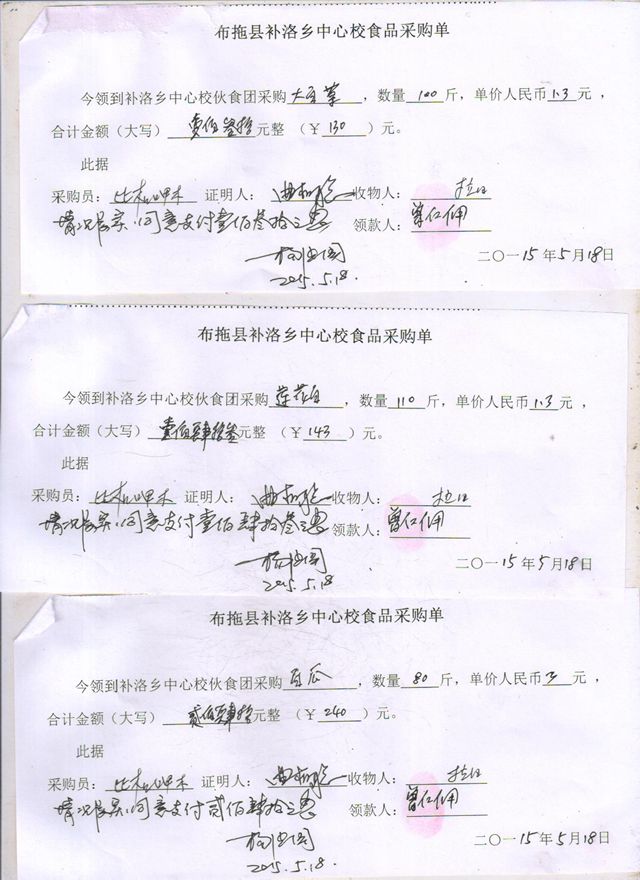 布拖县补洛乡中心校食品采购单
今领到补洛乡中心校伙食团采购 大豆芽 ，数量 100 斤，单价人民币 1.3 元，
合计金额（大写） 壹佰叁拾 元整 （￥ 130 ）元。
此据
采购员： 证明人： 收物人： 拉日
情况属实,同意支付壹佰叁拾元正 领款人： 曾仁佣
2015.5.18.
二〇一15年5月18日
布拖县补洛乡中心校食品采购单
今领到补洛乡中心校伙食团采购 莲花白 ，数量 110 斤，单价人民币 1.3 元，
合计金额（大写） 壹佰肆拾叁 元整 （￥ 143 ）元。
此据
采购员： 证明人： 收物人： 拉日
情况属实,同意支付壹佰肆拾叁元正 领款人： 曾仁佣
二〇一15年5月18日
2015.5.18
布拖县补洛乡中心校食品采购单
今领到补洛乡中心校伙食团采购 瓜 ，数量 80 斤，单价人民币 3 元，
合计金额（大写） 贰佰肆拾 元整 （￥ 240 ）元。
此据
采购员： 证明人： 收物人： 拉日
情况属实,同意支付贰佰肆拾元正 领款人： 曾仁佣
二〇一15年5月18日
2015.5.18.